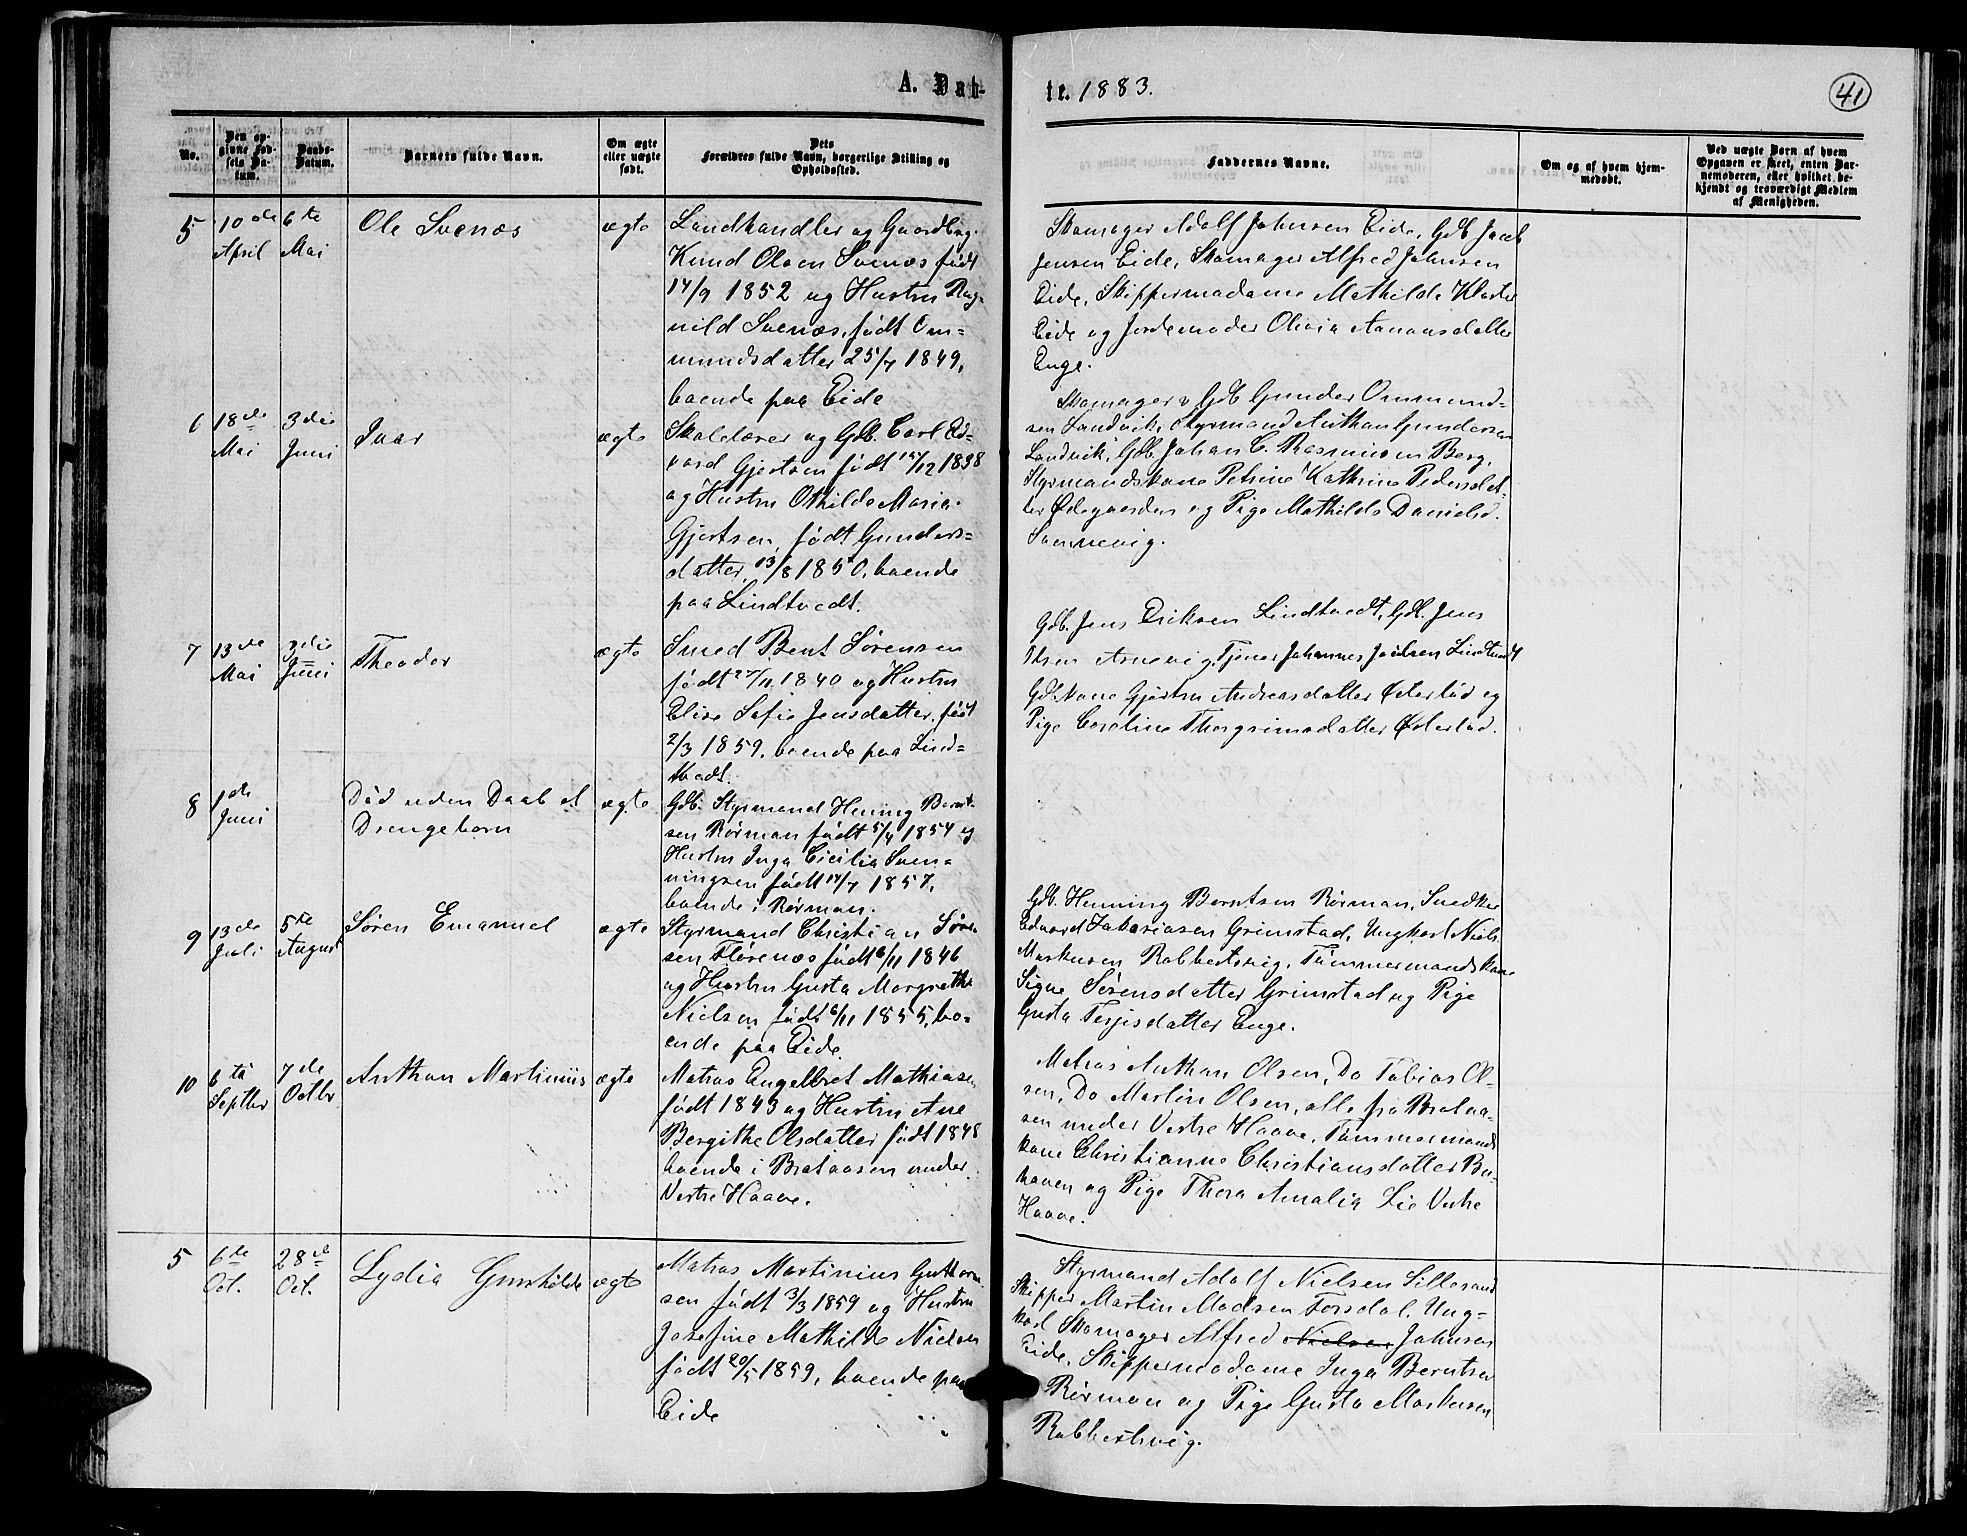 A. Daab-
te. 1883.
41
No.
Den op-
givne Fød-
sels Da-
tum.
Daabs-
Datum.
Barnets fulde Navn.
Om ægte
eller uægte
født.
Dets
Forældres fulde Navn, borgerlige Stilling og
Opholdssted.
Faddernes Navne.
Om og af hvem hjem-
medøbt.
Ved uægte Børn af hvem
Opgaven er skeet, enten Bar-
nemoderen, eller hvilket be-
kjendt og troværdigt Medlem
af Menigheden.
5
10de
April
6te
Mai
Ole Svenæs
ægte
Landhandler og Gaardbrg.
Knud Olsen Svenæs født
17/9 1852 og Hustru Rag-
nild Svenæs, født Om-
mundsdatter 25/7 1849,
boende paa Eide
Skomager Adolf Johnsen Eide, Gdb Jacob
Jensen Eide, Skomager Alfred Johnsen
Eide, Skippermadame Mathilde Kloster
Eide og Jordemoder Olivia Aanonsdatter
Enge.
6
18de
Mai
3die
Juni
Ivar
ægte
Skolelærer og Gdb. Carl Ed-
vard Gjertsen født 12/12 1838
og Hustru Othilde Marie
Gjertsen, født Gunders-
datter 13/8 1850, boende
paa Lindtvedt.
Skomager & Gdb Gunder Ommund-
sen Landvik, Styrmand Anthon Gundersen
Landvik, Gdb. Johan C. Rasmussen Berg,
Styrmandskone Petrine Kathrine Pedersdat-
ter Ødegaarden og Pige Mathilde Danielsd.
Somnevig.
7
13de
Mai
3die
Juni
Theodor
ægte
Smed Bent Sørensen
født 27/11 1840 og Hustru
Elise Sofie Jensdatter, født
2/3 1859, boende paa Lind-
tvedt.
Gdb. Jens Eriksen Lindtvedt, Gdb. Jens
Olsen Arnevig, Tjener Johannes Jacobsen Lindtvedt
Gdb.kone Gjertru Andreasdatter Østerlid og
Pige Caroline Thorgrimsdatter Østerlid.
8
1de
Juni
Død uden Daab et
Drengebarn
ægte
Gdb. Styrmand Henning Bernt-
sen Rørman født 5/4 1854 og
Hustru Inga Cicilia Sven-
ningsen født 14/7 1857,
boende i Rørman.
9
13de
Juli
5te
August
Søren Emanuel
ægte
Styrmand Christian Søren-
sen Florenæs født 6/11 1846
og Hustru Gusta Margrethe
Nielsen født 6/11 1855, bo-
ende paa Eide.
Gdb. Henning Berntsen Rørman, Snedker
Edvard Zakariasen Grimstad, Ungkarl Niels
Markusen Robbertsvig, Tømmermandskone
Signe Sørensdatter Grimstad og Pige
Gusta Terjesdatter Enge.
10
6te
Septbr
7de
Octbr
Anthon Martinius
ægte
Matros Engelbret Mathiasen
født 1843 og Hustru Ane
Bergithe Olsdatter født 1848
boende i Brataasen under
Vestre Haave.
Matros Anthon Olsen, Do Tobias Ol-
sen, Do Martin Olsen, alle fra Brataa-
sen under Vestre Haave, Tømmermands
kone Christianne Christiansdatter Bu-
haven og Pige Thora Amalia Lie Vestre
Haave.
5
6te
Oct.
28de
Oct.
Lydia Gunhilde
ægte
Matros Martinius Guttorm-
sen født 3/3 1859 og Hustru
Josefine Mathilde Nielsen
født 20/5 1859, boende paa
Eide
Styrmand Adolf Nielsen Sillesand
Skipper Martin Madsen Torsdal. Ung-
karl Skomager Alfred Nielsen Johnsen
Eide, Skippermadame Inga Berntsen
Rørman og Pige Gusta Markusen
Robbertsvig.